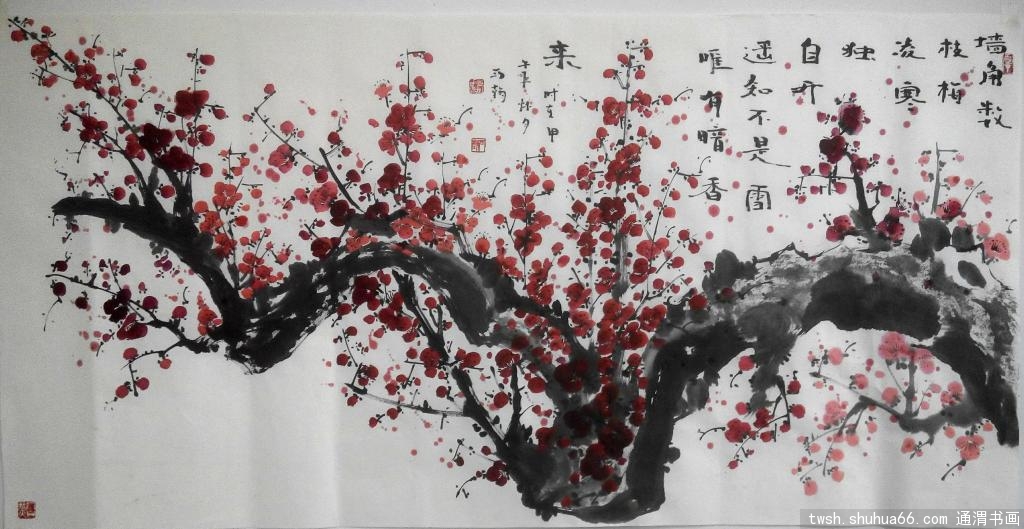 墙角数
枝梅
凌寒
独
自开
遥知不是雪
唯有暗香
来
时在甲
午年秋
twsh.shuhua66.com 通渭书画